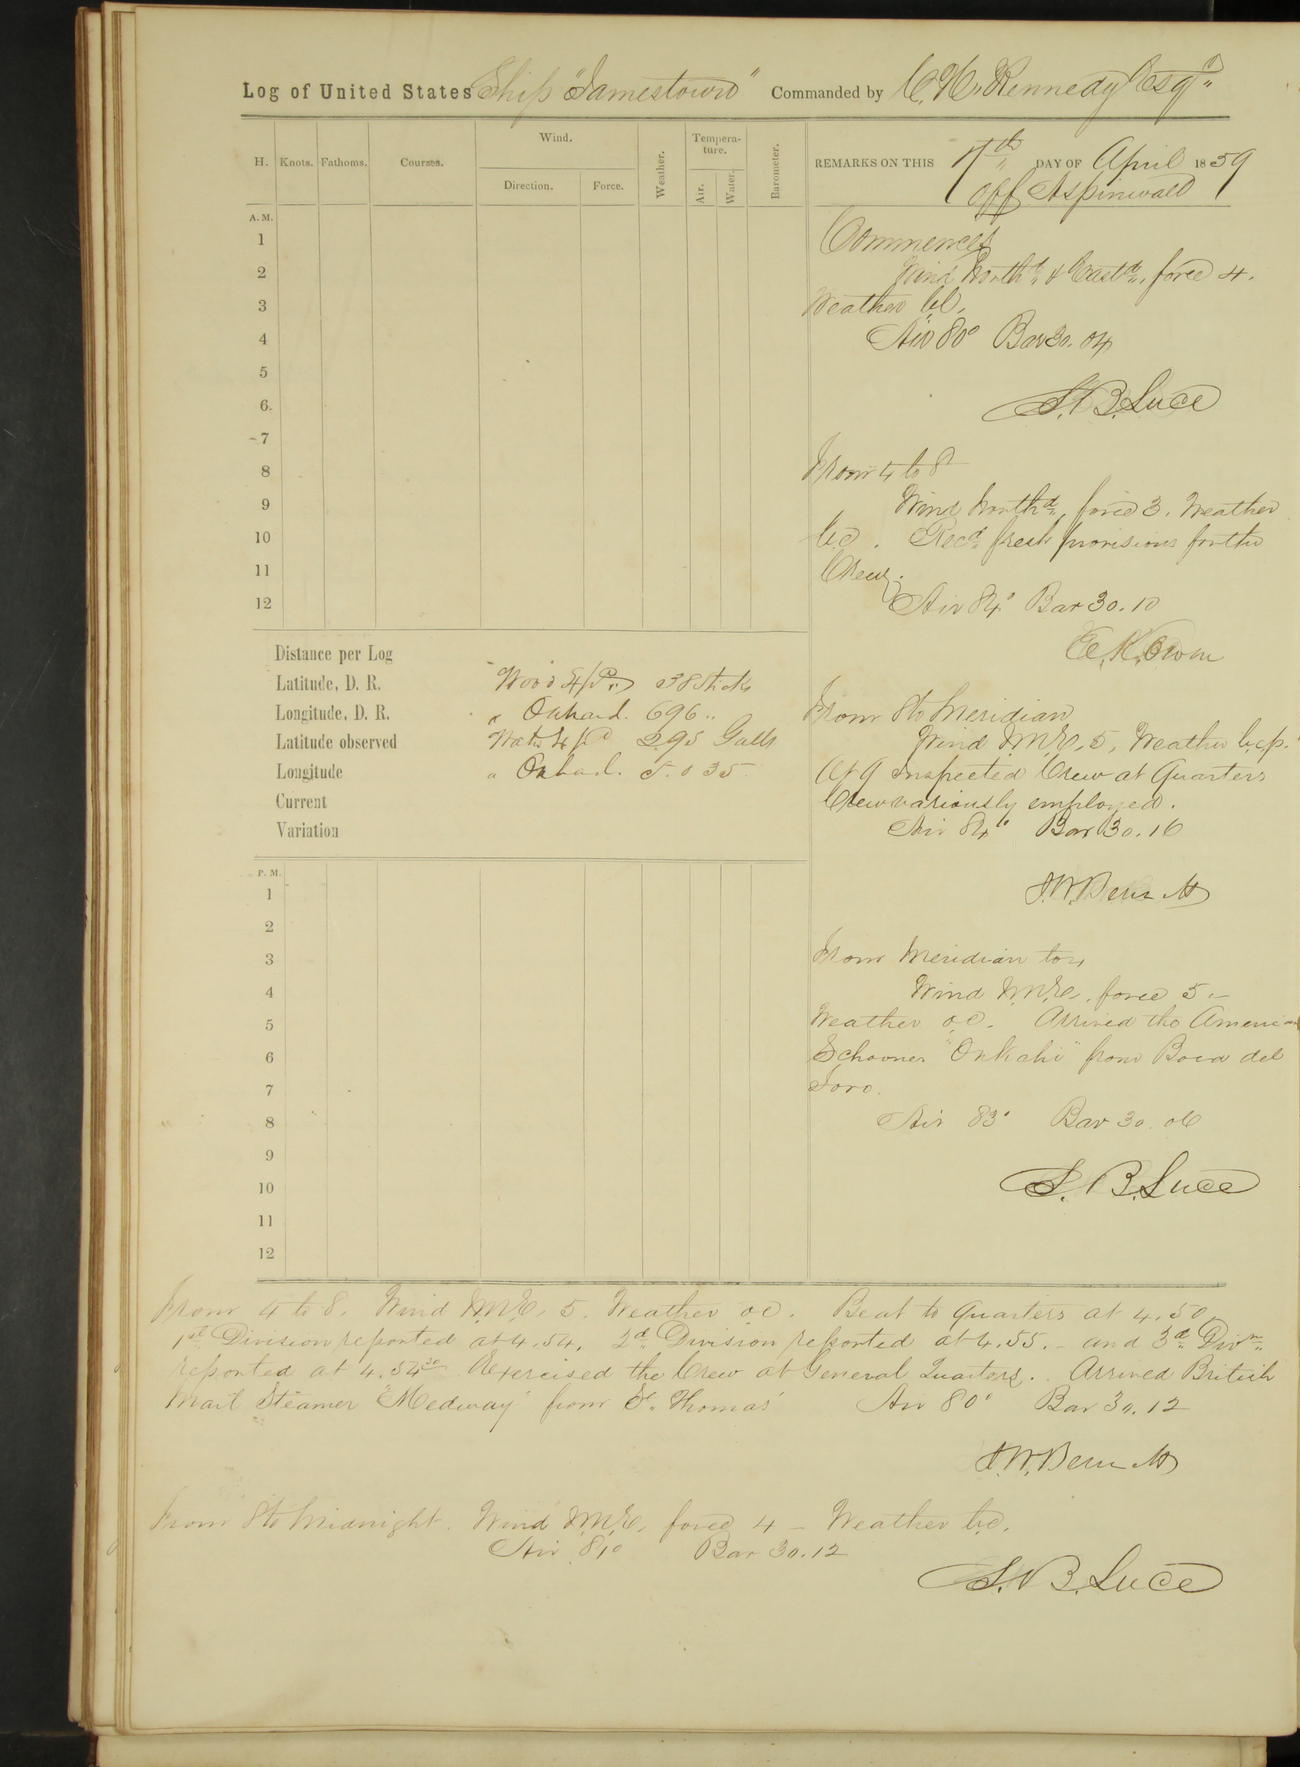 Log of United States Ship "Jamestown" Commanded by C. H. Kennedy Esqr
H. Knots. Fathoms. Courses. Wind. Direction. Force. Weather. Tempera-ture. Air. Water. Barometer.
REMARKS ON THIS 7th DAY OF April 1859
off Aspinwall
A.M.
1
2
3
4
5
6.
7
8
9
10
11
12
Commences
Wind Northd & Eastd, force 4.
Weather b.c.
Air 80° Bar 30.04
S. B. Luce
From 4 to 8
Wind Northd, force 3. Weather
b.c. Recd fresh provisions for the
Crew.
Air 84° Bar 30.10
E. K. Owen
From 8 to Meridian
Wind N.N.E. 5, Weather b.c.p.
At 9 inspected Crew at Quarters
Crew variously employed.
Air 84° Bar 30.16
J. W. Bennett
Distance per Log
Latitude, D. R. Wood Expd 38 sticks
Longitude, D. R. " On hand. 696 "
Latitude observed Water Expd 295 Galls
Longitude " On hand. 5.035
Current
Variation
P.M.
1
2
3
4
5
6
7
8
9
10
11
12
From Meridian to 4
Wind N.N.E. force 5 –
Weather o.c. Arrived the American
Schooner from Boca del
Toro.
Air 83° Bar 30.06
S. B. Luce
From 4 to 8. Wind N.N.E. 5. Weather o.c. Beat to quarters at 4.50,
1st Division reported at 4.54, 2d Division reported at 4.55. – and 3d Divn
reported at 4.54 30 Exercised the Crew at General Quarters. Arrived British
Mail Steamer "Medway" from St. Thomas Air 80° Bar 30.12
J. W. Bennett
From 8 to Midnight. Wind N.N.E. force 4 – Weather b.c.
Air 81° Bar 30.12
S. B. Luce